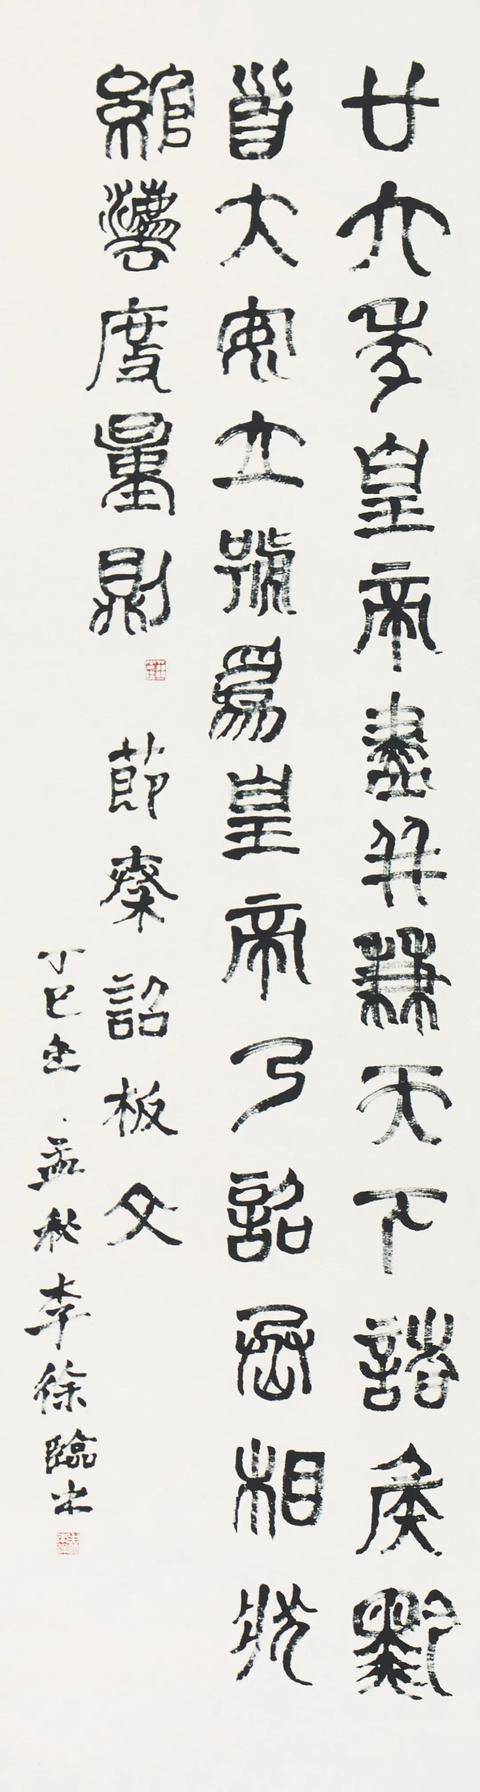 廿六年皇帝盡并兼天下諸矦黔
首大安立號爲皇帝乃詔丞相狀
綰灋度量則 節秦詔板文
丁巳 孟秋李徐臨